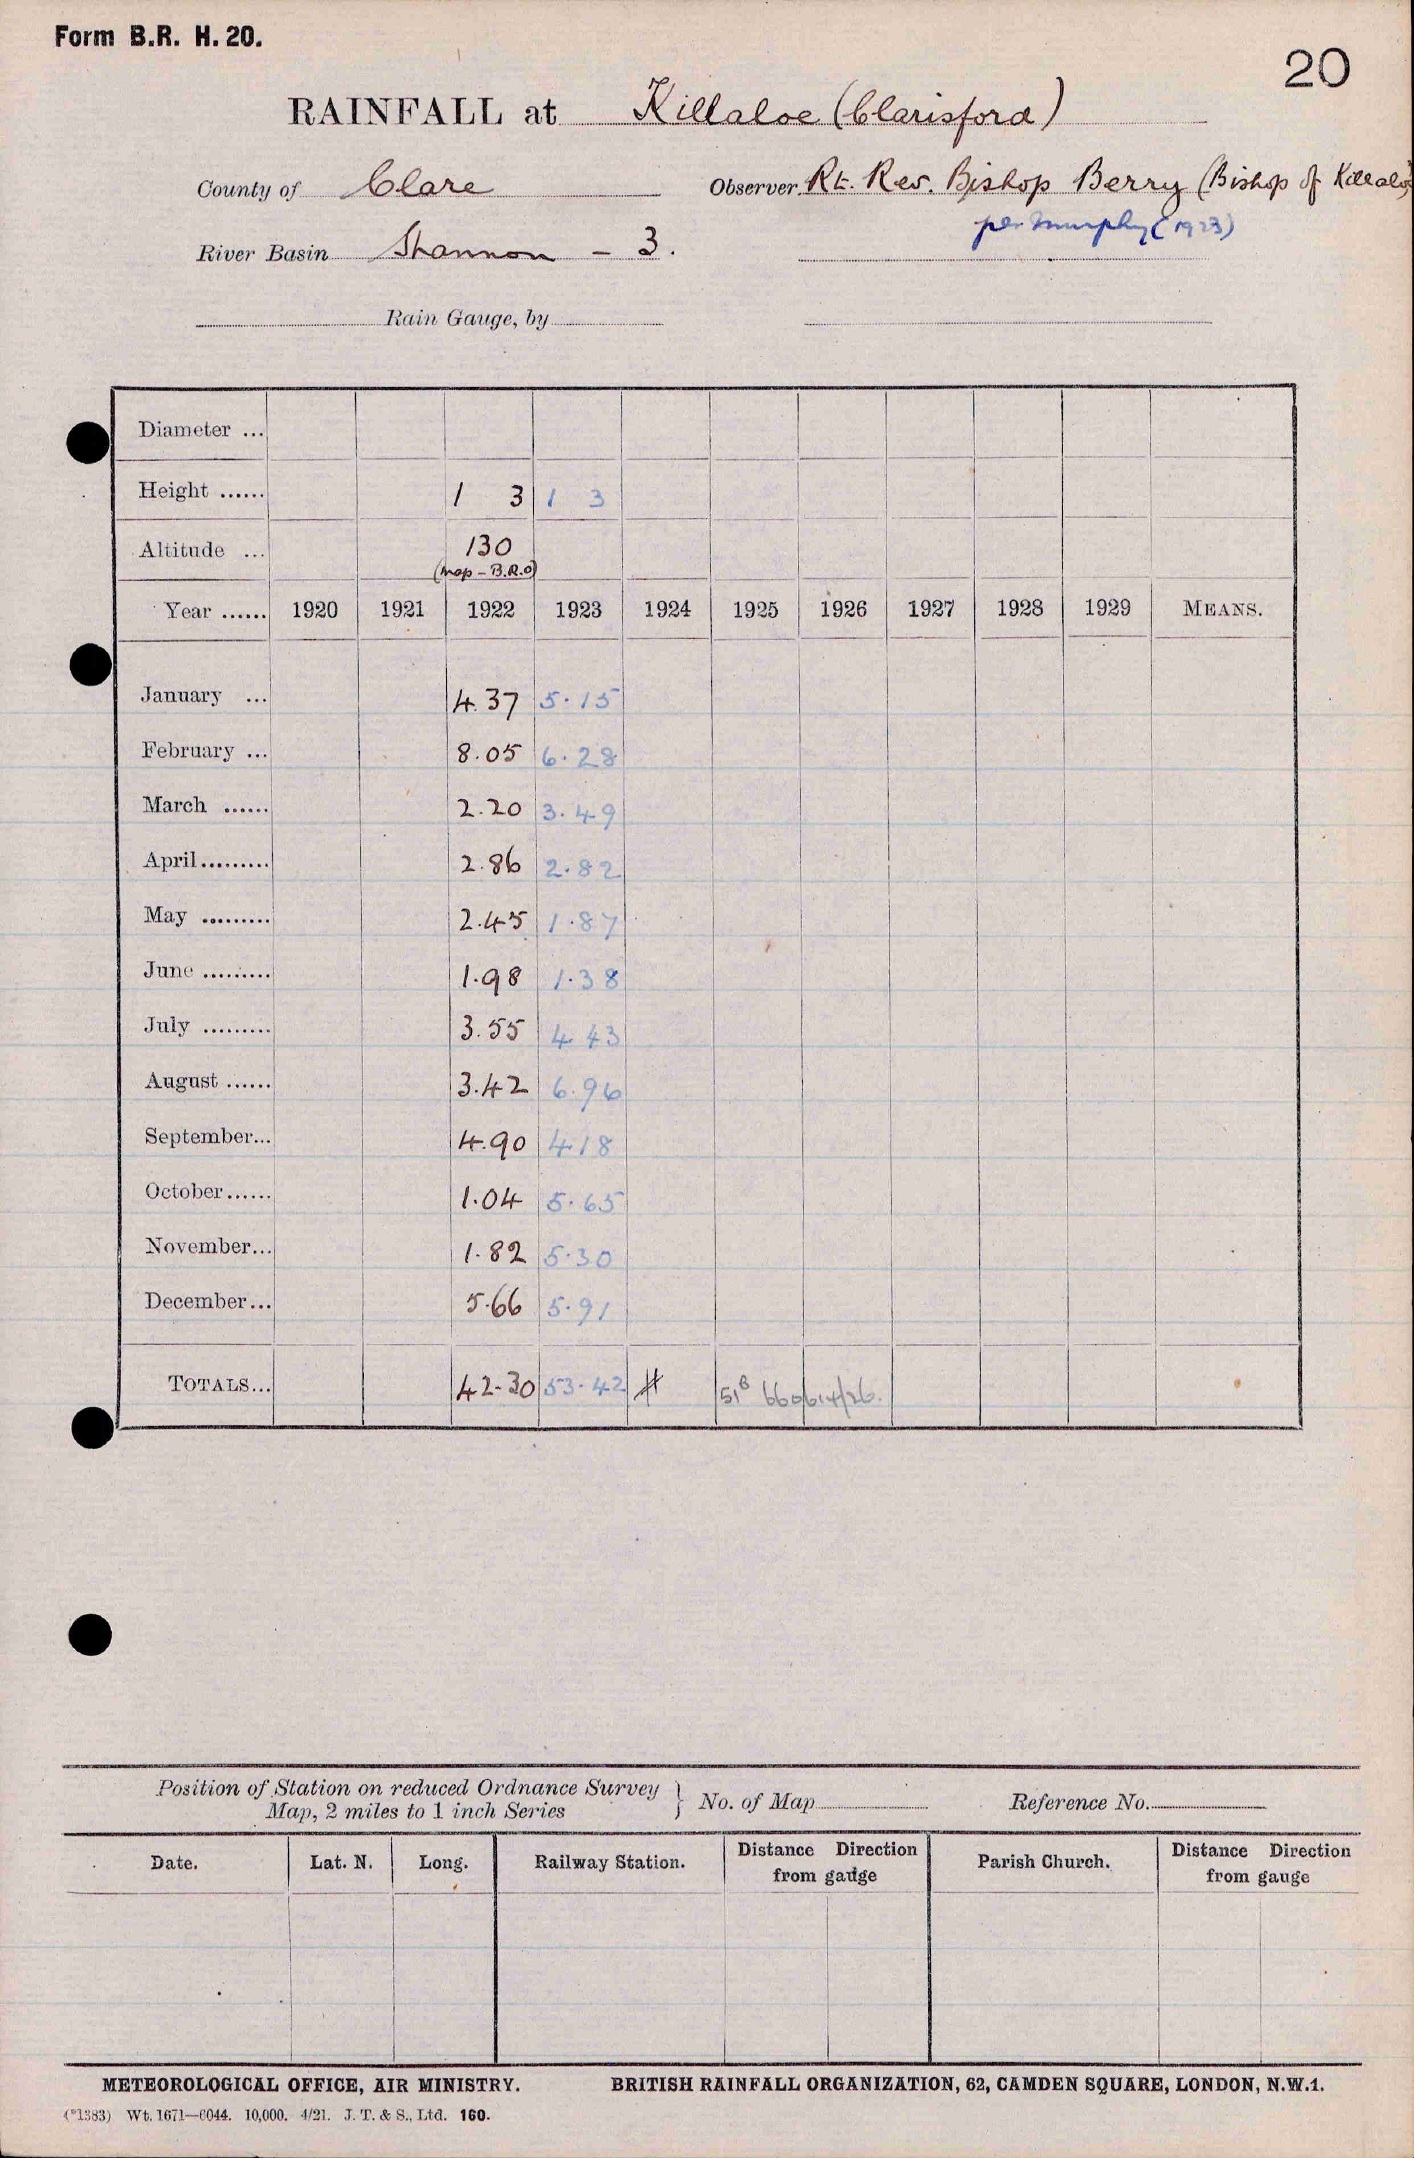 Form B.R. H. 20.
20
RAINFALL at Killaloe (Clarisford)
County of Clare Observer Rt. Rev. Bishop Berry (Bishop of Killaloe)
per Murphy (1923)
River Basin Shannon - 3.
Rain Gauge, by
Diameter ...
Height ...... 1 3 1 3
Altitude ... 130
(Map - B.R.O)
Year ...... 1920 1921 1922 1923 1924 1925 1926 1927 1928 1929 MEANS.
January ... 4.37 5.15
February ... 8.05 6.28
March ...... 2.20 3.49
April ......... 2.86 2.82
May ......... 2.45 1.87
June ......... 1.98 1.38
July ......... 3.55 4.43
August ...... 3.42 6.96
September... 4.90 4.18
October...... 1.04 5.65
November... 1.82 5.30
December... 5.66 5.91
TOTALS... 42.30 53.42 51B
Position of Station on reduced Ordnance Survey
Map, 2 miles to 1 inch Series } No. of Map Reference No.
Date. Lat. N. Long. Railway Station. Distance Direction
from gauge Parish Church. Distance Direction
from gauge
METEOROLOGICAL OFFICE, AIR MINISTRY. BRITISH RAINFALL ORGANIZATION, 62, CAMDEN SQUARE, LONDON, N.W.1.
(*1383) Wt. 1671—6044. 10,000. 4/21. J. T. & S., Ltd. 160.